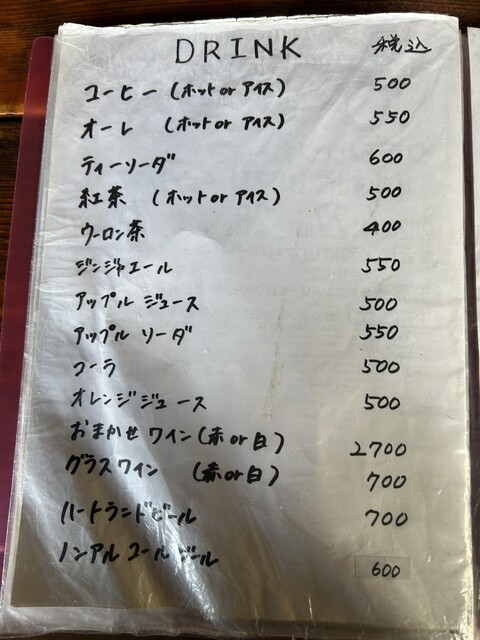 DRINK 税込
コーヒー (ホット or アイス) 500
オーレ (ホット or アイス) 550
ティーソーダ 600
紅茶 (ホット or アイス) 500
ウーロン茶 400
ジンジャエール 550
アップル ジュース 500
アップル ソーダ 550
コーラ 500
オレンジジュース 500
おまかせ ワイン (赤 or 白) 2700
グラスワイン (赤 or 白) 700
ハートランドビール 700
ノンアルコールビール 600